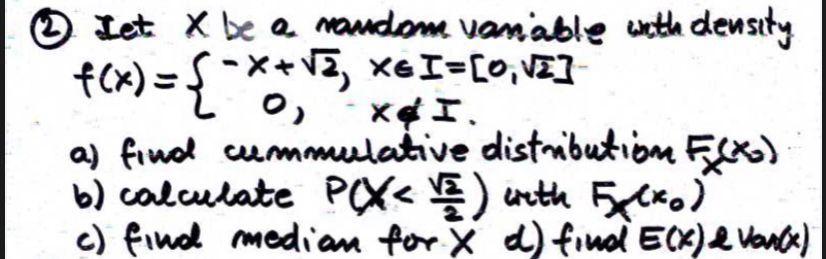 ② Let X be a random variable with density
f(x) = { -x+√2, x∈I=[0,√2]
0, x∉I.
a) find cummulative distribution Fₓ(x₀)
b) calculate P(X< √2/2) with Fₓ(x₀)
c) find median for X d) find E(X) & Var(x)